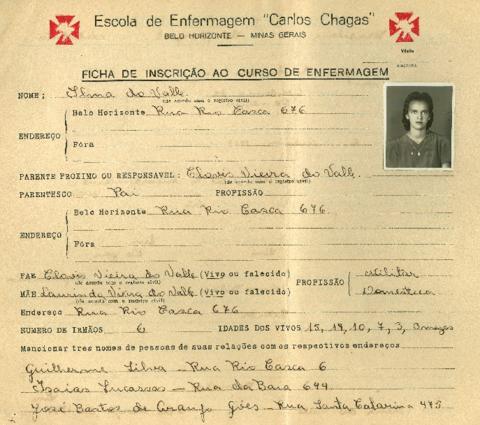 Escola de Enfermagem "Carlos Chagas"
BELO HORIZONTE — MINAS GERAIS
FICHA DE INSCRIÇÃO AO CURSO DE ENFERMAGEM
NOME: Ilma do Valle
(de acordo com o registro civil)
Belo Horizonte Rua Rio Casca 676
ENDEREÇO
Fóra
PARENTE PROXIMO OU RESPONSAVEL: Clovis Vieira do Valle
(de acordo com o registro civil)
PARENTESCO Pai PROFISSÃO
Belo Horizonte Rua Rio Casca 676.
ENDEREÇO
Fóra
PAE Clovis Vieira do Valle (Vivo ou falecido) PROFISSÃO Militar
(de acordo com o registro civil)
MÃE Laurinda Vieira do Valle (Viva ou falecida) Domestica
(de acordo com o registro civil)
Endereço Rua Rio Casca 676
NUMERO DE IRMÃOS 6 IDADES DOS VIVOS 15, 14, 10, 7, 3, 0 mezes
Mencionar tres nomes de pessoas de suas relações com os respectivos endereços
Guilherme Silva — Rua Rio Casca 6
Isaias Lucassas — Rua da Baia 644
José Bastos de Araujo Góes — Rua Santa Catarina 475